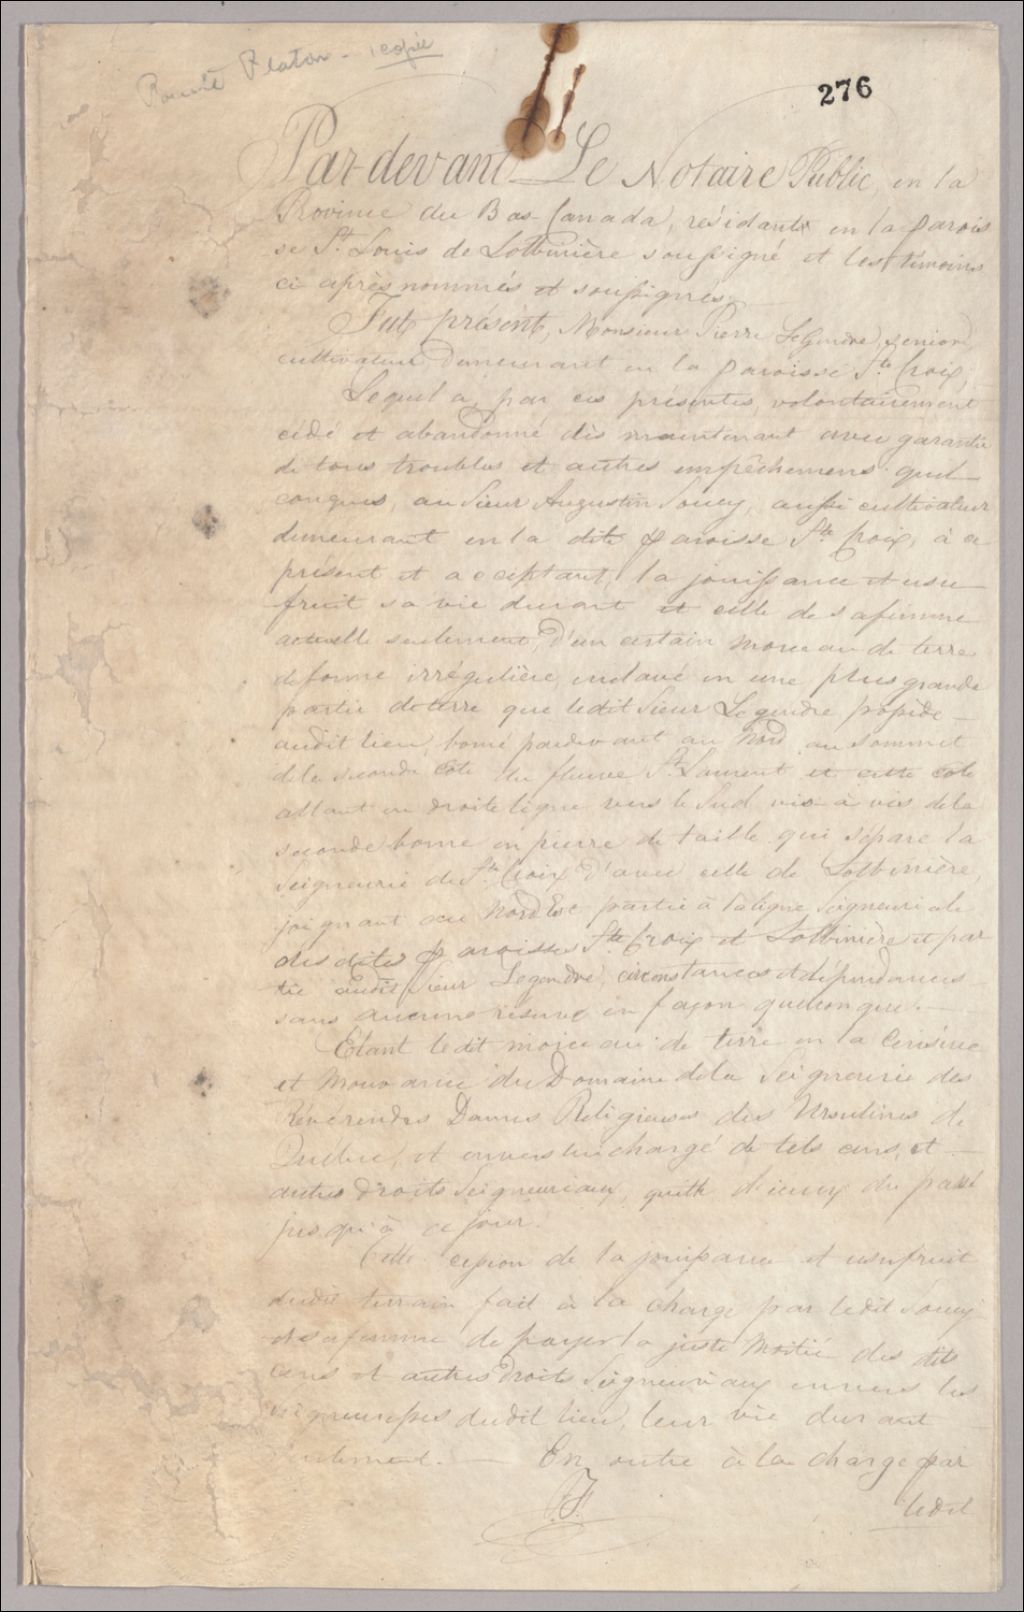 Pointe Platon - copie
276
Pardevant Le Notaire Public, en la
Province du Bas-Canada, résidant en la parois
se St. Louis de Lotbinière soussigné et les témoins
ci après nommés et soussignés.
Fut présent, Monsieur Pierre LeGendre, senior,
cultivateur demeurant en la paroisse Ste. Croix,
Lequel a, par ces présentes, volontairement
cédé et abandonné dès maintenant avec garantie
de tous troubles et autres empêchemens quel-
conques, au Sieur Augustin Soucy, aussi cultivateur
demeurant en la dite paroisse Ste. Croix, à ce
présent et acceptant, la jouissance et usu-
fruit sa vie durant et celle de sa femme
actuelle seulement, d'un certain morceau de terre
de forme irrégulière, enclavé en une plus grande
partie de terre que ledit Sieur Legendre possède
audit lieu, borné pardevant au Nord au sommet
de la seconde cote du fleuve St. Laurent et cette cote
allant en droite ligne vers le Sud vis-à-vis de la
seconde borne en pierre de taille qui sépare la
Seigneurie de Ste. Croix d'avec celle de Lotbinière,
joignant au Nord Est partie à la ligne Seigneuriale
des dites paroisses Ste. Croix et Lotbinière et par
tie audit Sieur Legendre, circonstances et dépendances
sans aucune réserve en façon quelconque.
Étant ledit morceau de terre en la Censive
et Mouvance du Domaine de la Seigneurie des
Révérendes Dames Religieuses des Ursulines de
Québec, et envers lui chargé de tels cens, et
autres droits Seigneuriaux, quitte d'iceux du passé
jusqu'à ce jour.
Cette cession de la jouissance et usufruit
dudit terrain fait à la charge par ledit Soucy
et sa femme de payer la juste Moitié des dits
cens et autres droits Seigneuriaux envers les
Seigneuresses dudit lieu, leur vie durant
seulement. — En outre à la charge par
ledit